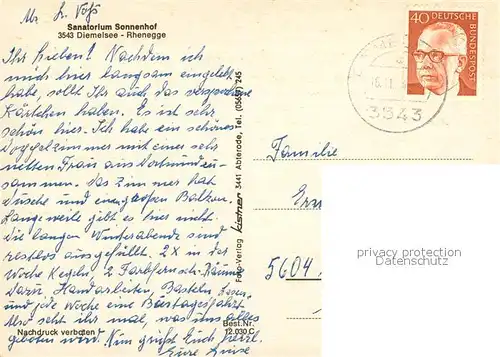 Abs. L. Voß
Sanatorium Sonnenhof
3543 Diemelsee - Rhenegge
Ihr Lieben! Nachdem ich
mich hier langsam eingelebt
habe, sollt Ihr auch das versprochene
Kärtchen haben. Es ist sehr
schön hier. Ich habe ein schönes
Doppelzimmer mit einer sehr
netten Frau aus Dortmund zu-
sammen. Das Zimmer hat
Dusche und einen großen Balkon.
Langeweile gibt es hier nicht.
Die langen Winterabende sind
restlos ausgefüllt. 2X in der
Woche Kegeln, 2 Farbfernseh-Räume
Dazu Handarbeiten, Basteln, Lesen
und jede Woche eine Bustagesfahrt.
Also seht ihr mal, was uns alles
geboten wird. Nun grüßt Euch herzl.
Eure Luise
Nachdruck verboten!
Best.Nr.
12.030 C
Foto-Verlag Kästner 3441 Abterode, Tel. (05657) 245
40 DEUTSCHE
BUNDESPOST
3543
Familie
5604
privacy protection
Datenschutz